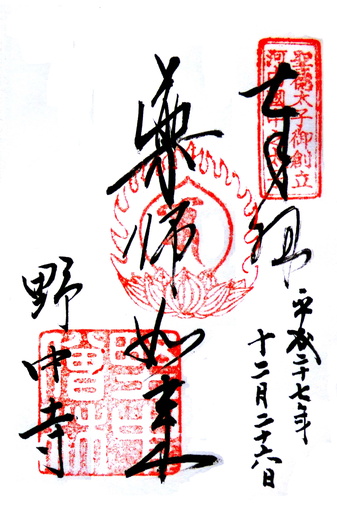 聖徳太子御創立
奉拝
平成二十七年
十二月二十六日
薬師如来
野中寺